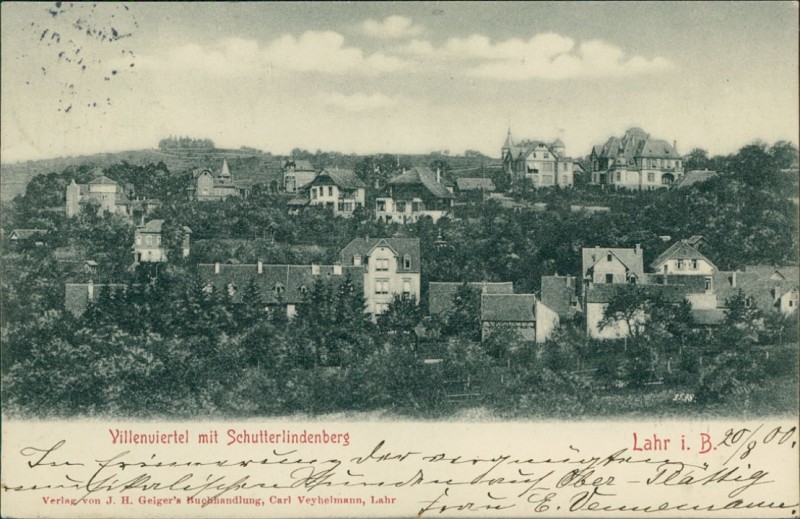 Villenviertel mit Schutterlindenberg
Lahr i. B.
20/8 00.
In Erinnerung der vergnügten
musikalischen Stunden auf Ober-Plättig
Verlag von J. H. Geiger's Buchhandlung, Carl Veyhelmann, Lahr
Frau E. Vennemann.